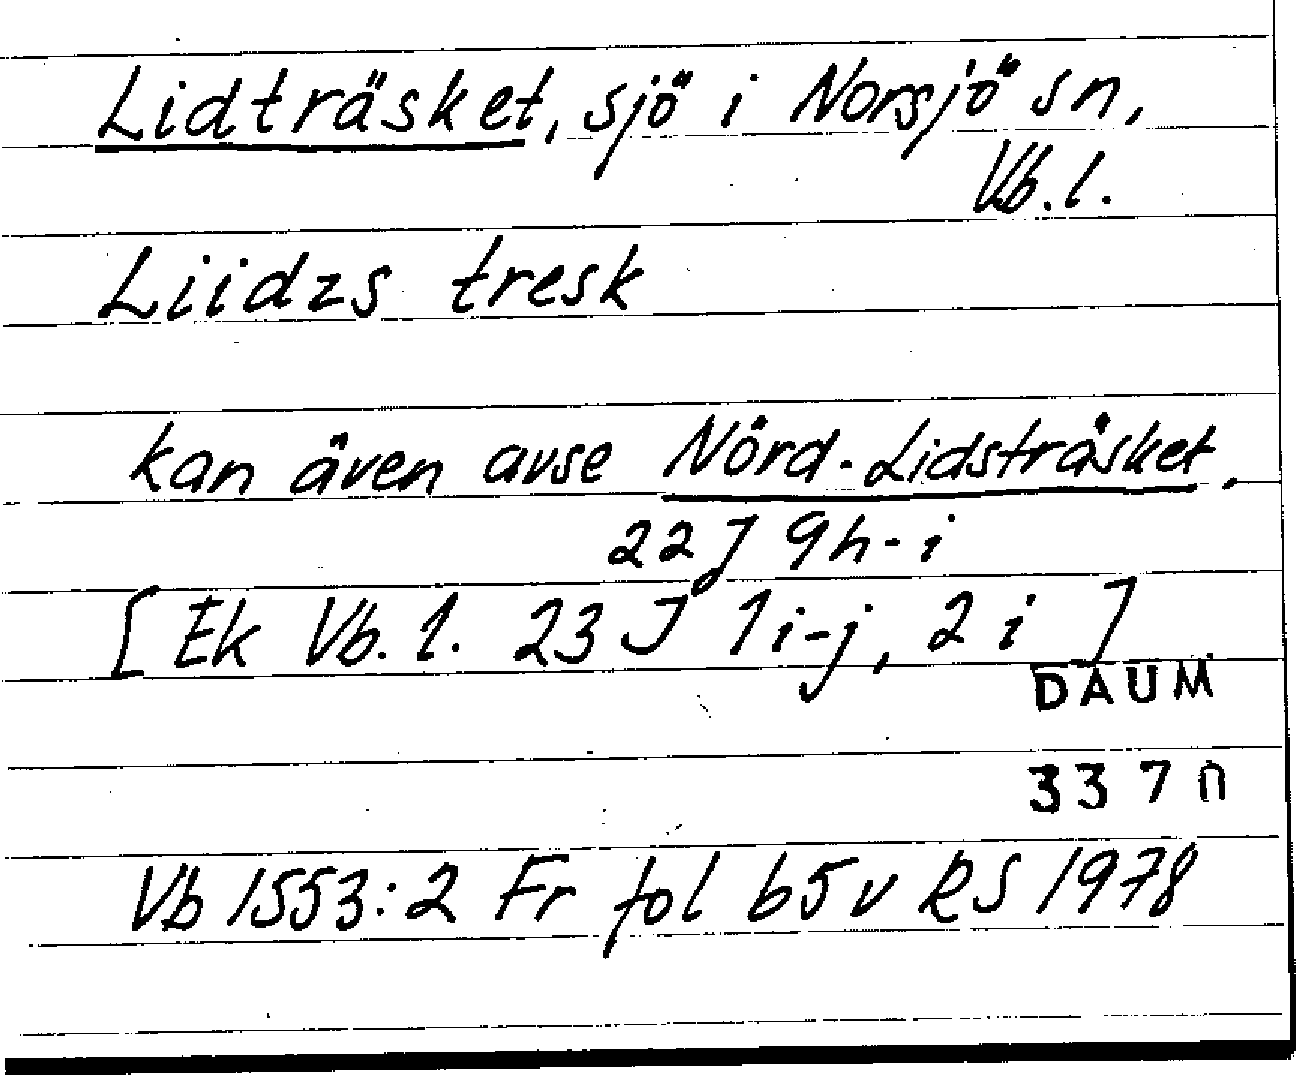 Lidträsket, sjö i Norsjö sn,
Vb. l.
Liidzs tresk
kan även avse Nörd-Lidsträsket,
22J 9h-i
[Ek Vb. l. 23J 1i-j, 2i]
DAUM
3370
Vb 1553:2 Fr fol 65v RS 1978